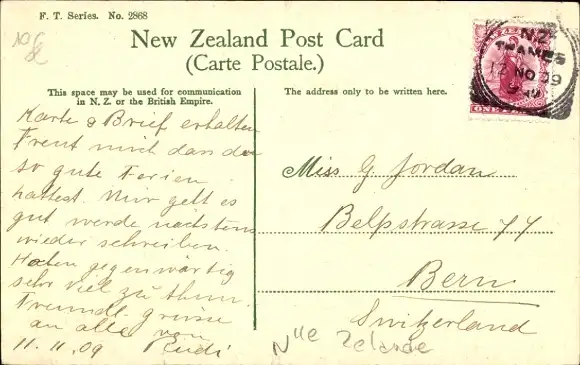 F. T. Series. No. 2868
New Zealand Post Card
(Carte Postale.)
This space may be used for communication
in N. Z. or the British Empire.
The address only to be written here.
N.Z.
THAMES
12 NO 09
ONE
Karte & Brief erhalten
Freut mich dass du
so gute Ferien
hattest. Mir geht es
gut werde nächstens
wieder schreiben.
Haben gegenwärtig
sehr viel zu thun.
Freundl. grüsse
an alle von
11. 11. 09 Rudi
Miss G Jordan
Belpstrasse 77
Bern
Switzerland
Nlle Zelande